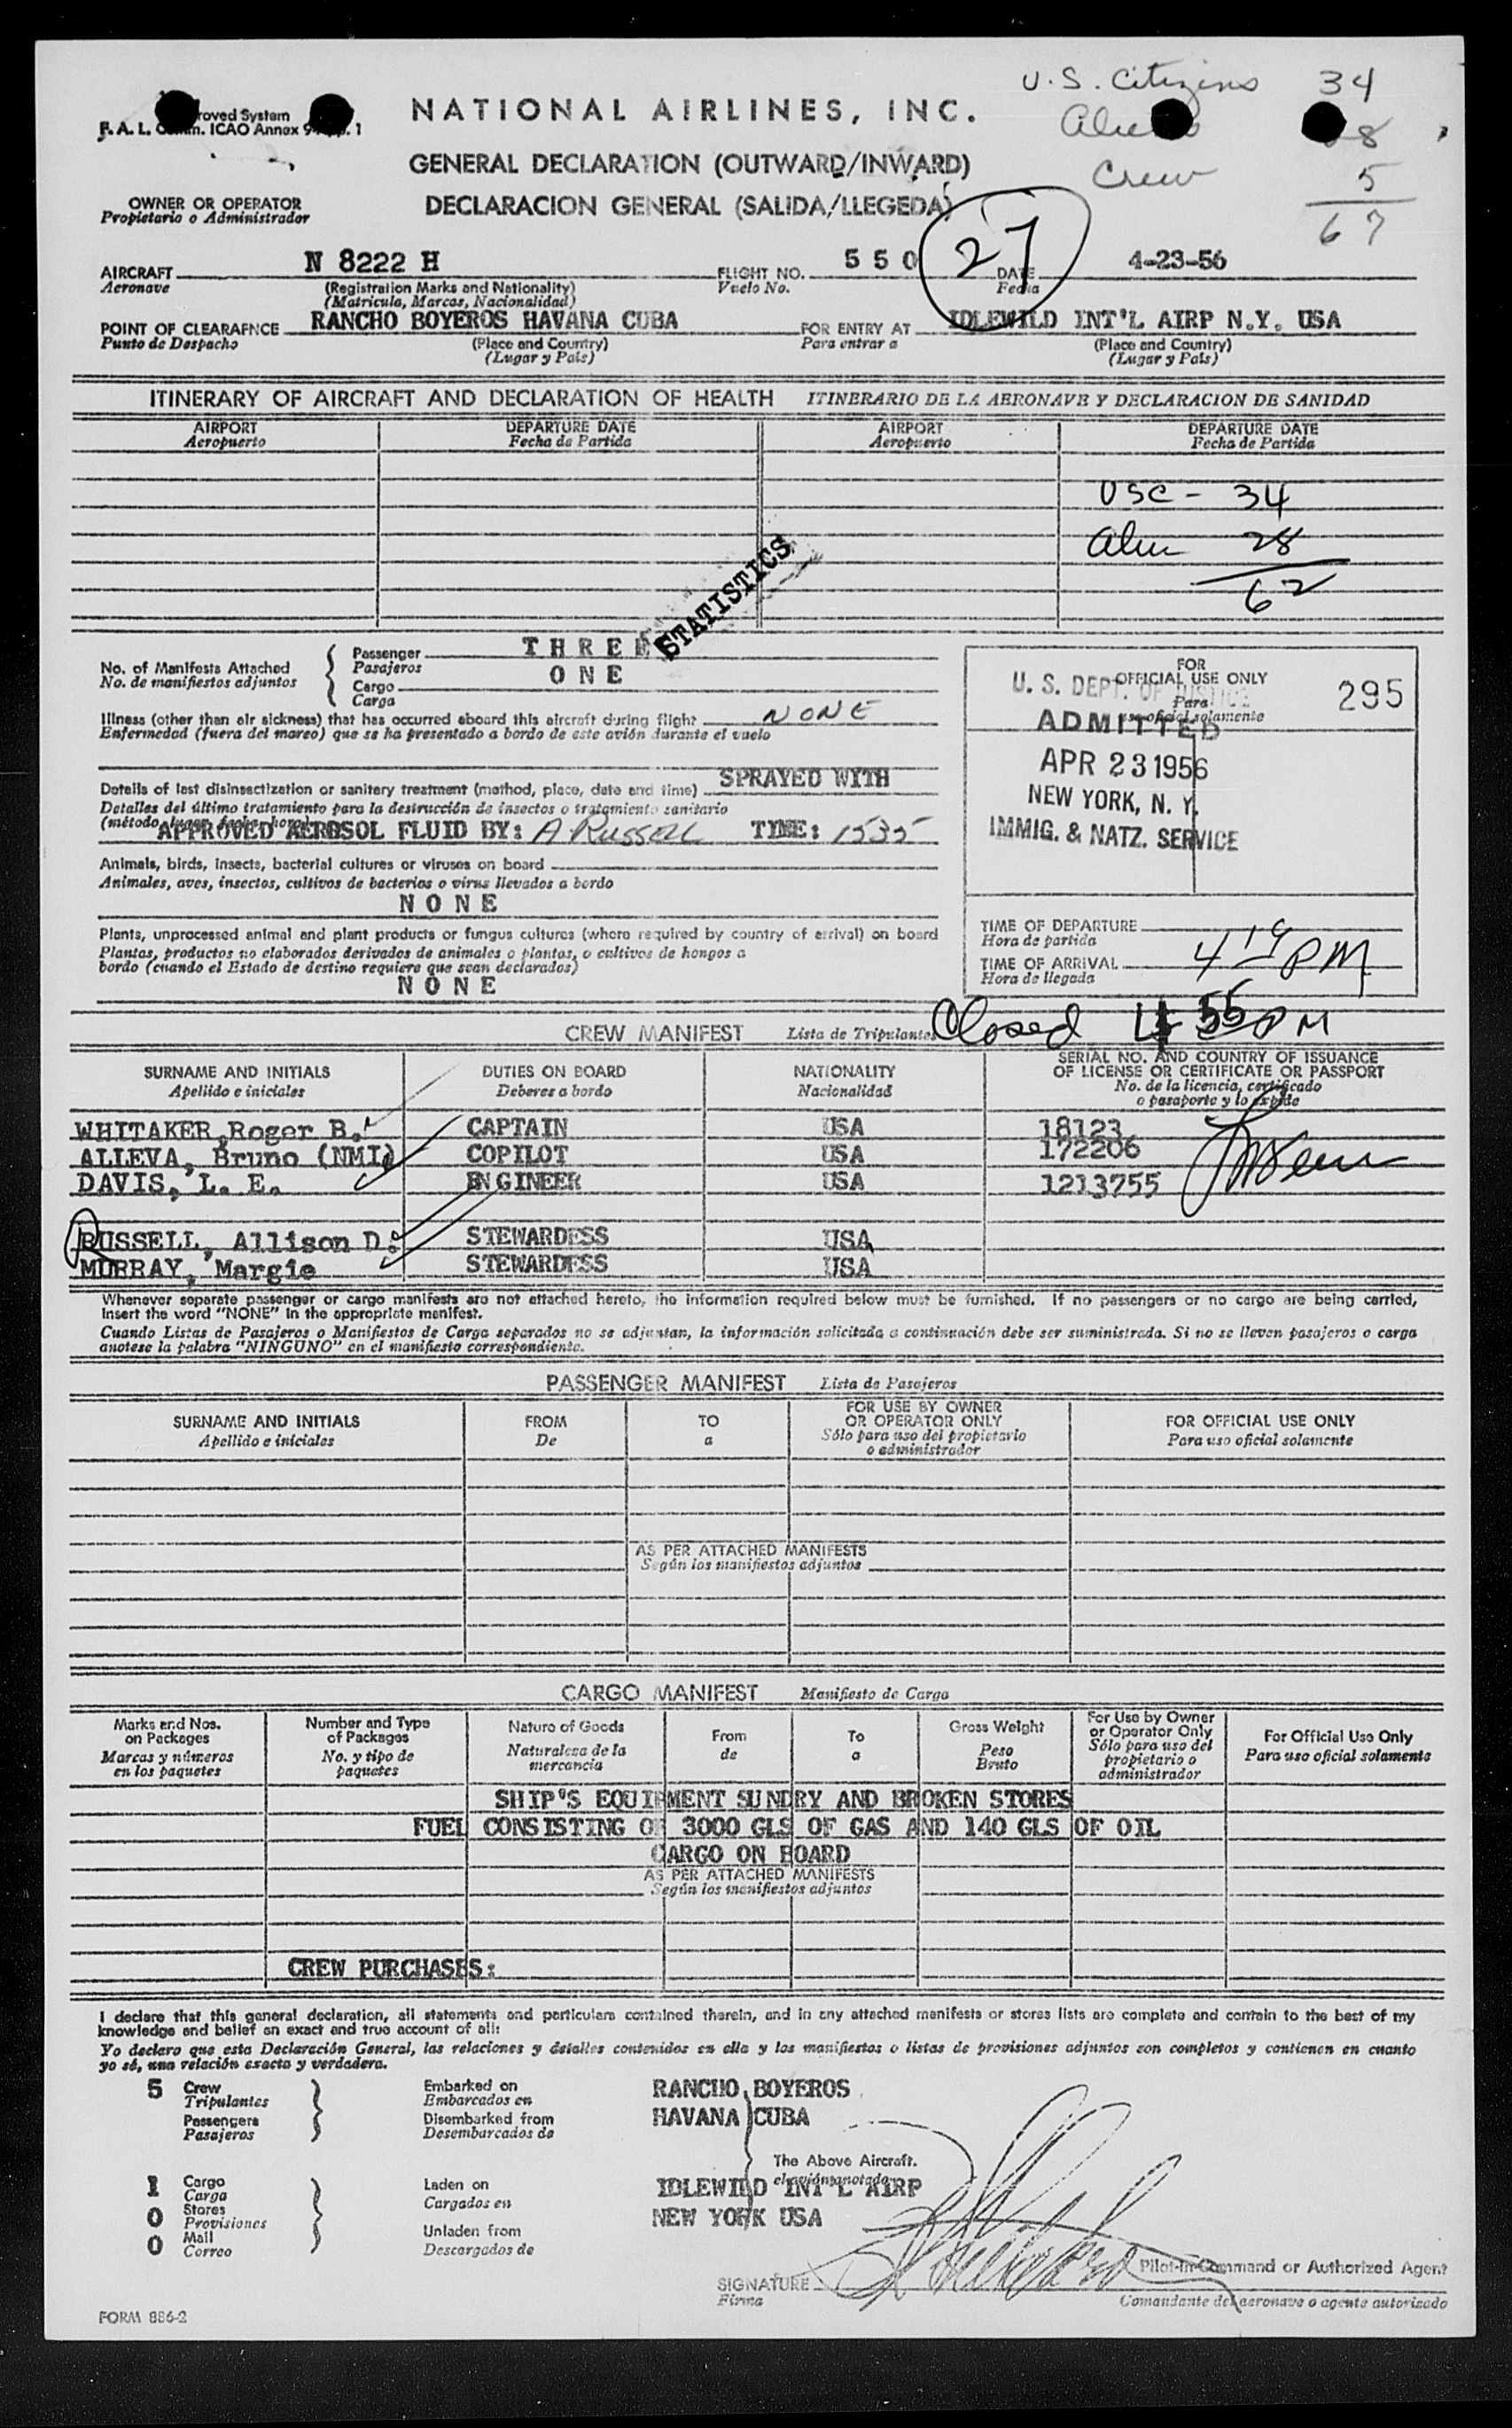 U.S. Citizens 34
roved System
F.A.L. ICAO Annex 1
NATIONAL AIRLINES, INC.
8
Crew 5
67
GENERAL DECLARATION (OUTWARD/INWARD)
OWNER OR OPERATOR
Propietario o Administrador
DECLARACION GENERAL (SALIDA/LLEGEDA)
27
AIRCRAFT N 8222 H FLIGHT NO. 550 DATE 4-23-56
Aeronave (Registration Marks and Nationality) Vuelo No. Fecha
(Matricula, Marcas, Nacionalidad)
POINT OF CLEARAFNCE RANCHO BOYEROS HAVANA CUBA FOR ENTRY AT IDLEWILD INT'L AIRP N.Y. USA
Punto de Despacho (Place and Country) Para entrar a (Place and Country)
(Lugar y Pais) (Lugar y Pais)
ITINERARY OF AIRCRAFT AND DECLARATION OF HEALTH ITINERARIO DE LA AERONAVE Y DECLARACION DE SANIDAD
AIRPORT DEPARTURE DATE AIRPORT DEPARTURE DATE
Aeropuerto Fecha de Partida Aeropuerto Fecha de Partida
USC - 34
28
62
STATISTICS
No. of Manifests Attached Passenger THREE
No. de manifiestos adjuntos Pasajeros
Cargo ONE
Carga
FOR
OFFICIAL USE ONLY
Para
uso oficial solamente
295
U. S. DEPT. OF JUSTICE
ADMITTED
APR 23 1956
NEW YORK, N. Y.
IMMIG. & NATZ. SERVICE
Illness (other than air sickness) that has occurred aboard this aircraft during flight NONE
Enfermedad (fuera del mareo) que se ha presentado a bordo de este avión durante el vuelo
Details of last disinsectization or sanitary treatment (method, place, date and time) SPRAYED WITH
Detalles del último tratamiento para la destrucción de insectos o tratamiento sanitario
(método, lugar, fecha, hora)
APPROVED AEROSOL FLUID BY: A Russell TIME: 1535
Animals, birds, insects, bacterial cultures or viruses on board
Animales, aves, insectos, cultivos de bacterias o virus llevados a bordo
NONE
Plants, unprocessed animal and plant products or fungus cultures (where required by country of arrival) on board
Plantas, productos no elaborados derivados de animales o plantas, o cultivos de hongos a
bordo (cuando el Estado de destino requiere que sean declarados)
NONE
TIME OF DEPARTURE
Hora de partida
TIME OF ARRIVAL 4 PM
Hora de llegada
Closed 4 55 PM
CREW MANIFEST Lista de Tripulantes
SURNAME AND INITIALS DUTIES ON BOARD NATIONALITY SERIAL NO. AND COUNTRY OF ISSUANCE
OF LICENSE OR CERTIFICATE OR PASSPORT
Apellido e iniciales Deberes a bordo Nacionalidad No. de la licencia, certificado
o pasaporte y lo expide
WHITAKER, Roger B. CAPTAIN USA 18123
ALLEVA, Bruno (NMI) COPILOT USA 172206
DAVIS, L. E. ENGINEER USA 1213755
RUSSELL, Allison D. STEWARDESS USA
MURRAY, Margie STEWARDESS USA
Whenever separate passenger or cargo manifests are not attached hereto, the information required below must be furnished. If no passengers or no cargo are being carried,
insert the word "NONE" in the appropriate manifest.
Cuando Listas de Pasajeros o Manifiestos de Carga separados no se adjuntan, la información solicitada a continuación debe ser suministrada. Si no se lleven pasajeros o carga
anotese la palabra "NINGUNO" en el manifiesto correspondiente.
PASSENGER MANIFEST Lista de Pasajeros
SURNAME AND INITIALS FROM TO FOR USE BY OWNER
OR OPERATOR ONLY FOR OFFICIAL USE ONLY
Apellido e iniciales De a Sólo para uso del propietario
o administrador Para uso oficial solamente
AS PER ATTACHED MANIFESTS
Según los manifiestos adjuntos
CARGO MANIFEST Manifiesto de Carga
Marks and Nos.
on Packages
Marcas y números
en los paquetes
Number and Type
of Packages
No. y tipo de
paquetes
Nature of Goods
Naturaleza de la
mercancia
From
de
To
a
Gross Weight
Peso
Bruto
For Use by Owner
or Operator Only
Sólo para uso del
propietario o
administrador
For Official Use Only
Para uso oficial solamente
SHIP'S EQUIPMENT SUNDRY AND BROKEN STORES
FUEL CONSISTING OF 3000 GLS OF GAS AND 140 GLS OF OIL
CARGO ON BOARD
AS PER ATTACHED MANIFESTS
Según los manifiestos adjuntos
CREW PURCHASES:
I declare that this general declaration, all statements and particulars contained therein, and in any attached manifests or stores lists are complete and contain to the best of my
knowledge and belief an exact and true account of all:
Yo declaro que esta Declaración General, las relaciones y detalles contenidos en ella y los manifiestos o listas de provisiones adjuntos son completos y contienen en cuanto
yo sé, una relación exacta y verdadera.
5 Crew Embarked on RANCHO BOYEROS
Tripulantes Embarcados en
Passengers Disembarked from HAVANA CUBA
Pasajeros Desembarcados de
The Above Aircraft.
el avión anotado
1 Cargo Laden on IDLEWILD INT'L AIRP
Carga Cargados en
0 Stores NEW YORK USA
Provisiones
0 Mail Unladen from
Correo Descargados de
SIGNATURE Pilot-in-Command or Authorized Agent
Firma Comandante de aeronave o agente autorizado
FORM 886-2